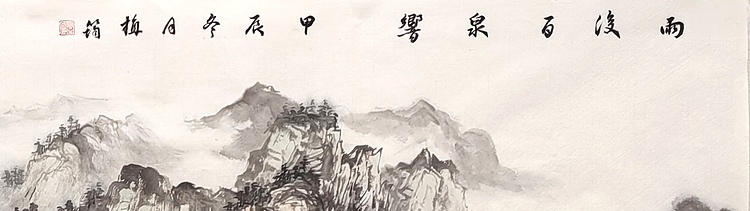 雨後百泉響 甲辰冬月 梅筠